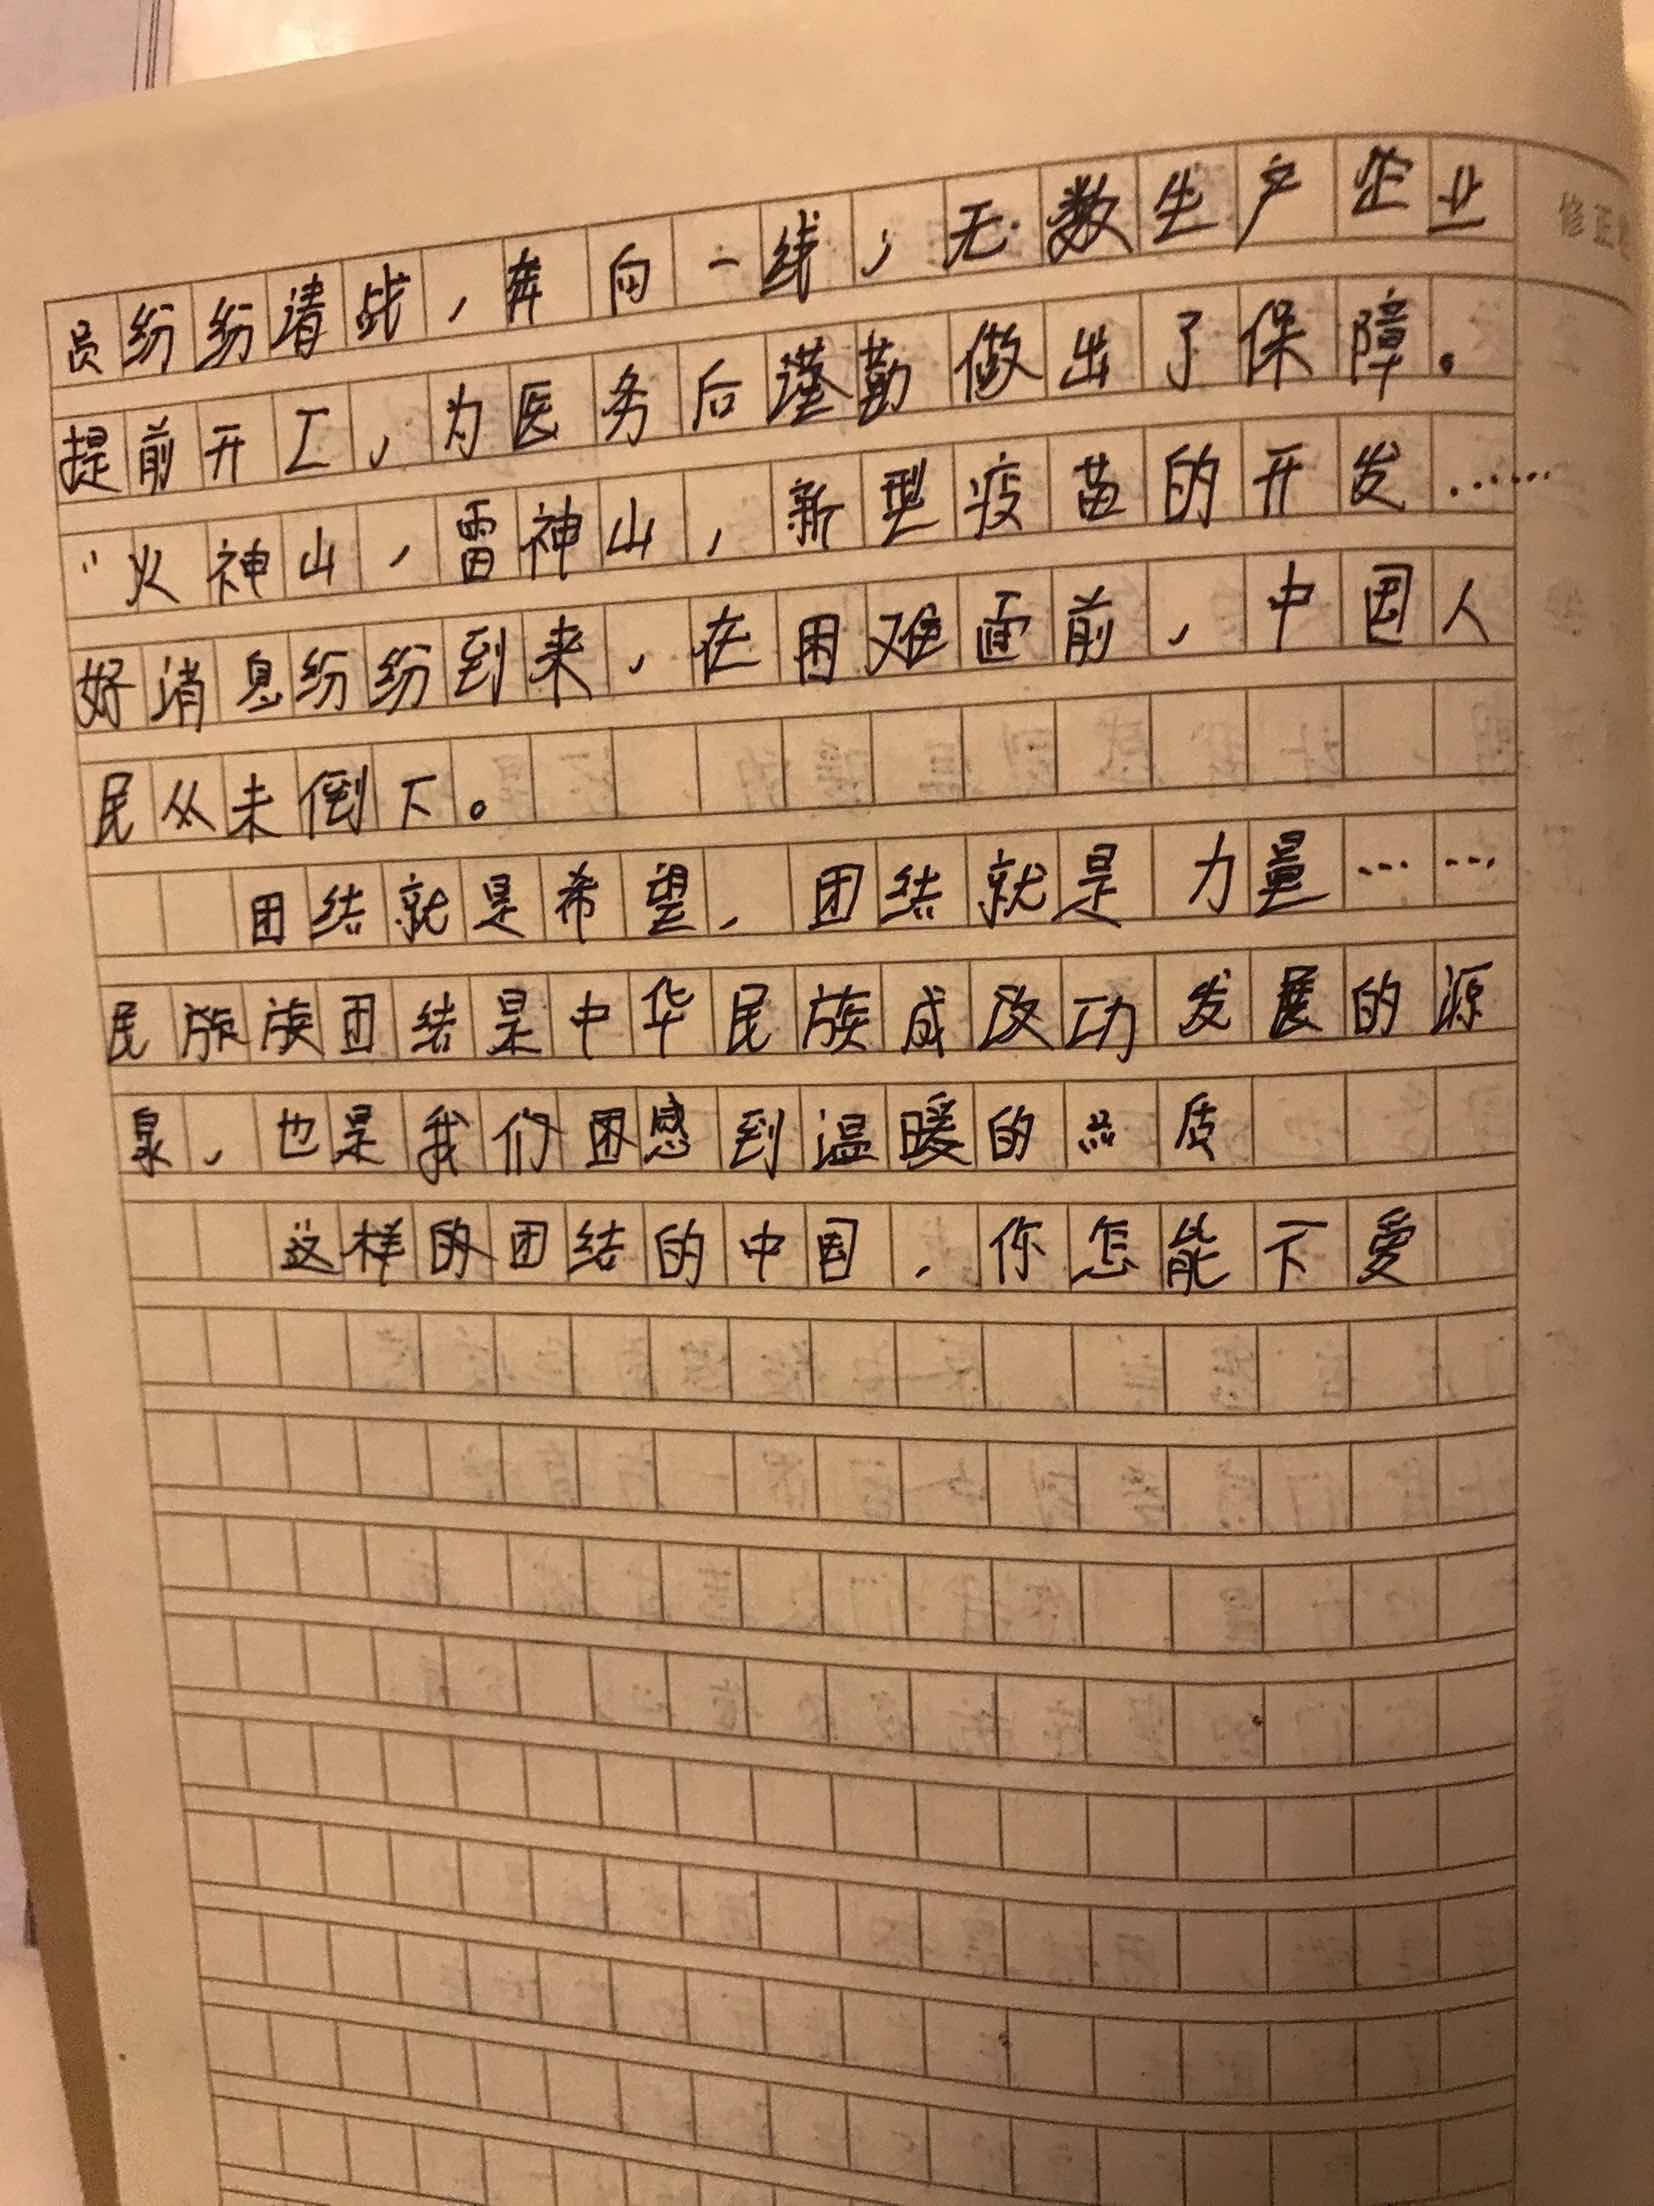 员纷纷请战，奔向一线，无数生产企业
提前开工，为医务后谨勤做出了保障。
“火神山，雷神山，新型疫苗的开发……
好消息纷纷到来，在困难面前，中国人
民从未倒下。
团结就是希望，团结就是力量……
民族族团结是中华民族成改功发展的源
泉，也是我们困感到温暖的品质
这样的团结的中国，你怎能不爱